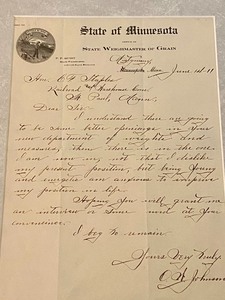 State of Minnesota
OFFICE OF
STATE WEIGHMASTER OF GRAIN
Minneapolis, Minn. June 1st 11
Hon. C F Staples
Railroad and Warehouse Com
St Paul, Minn.
Dear Sir
I understand there are going
to be some better openings in your
new department of weights and
measures, than there is in the one
I am now in, not that I dislike
my present position, but being young
and energetic am anxious to improve
my position in life.
Hoping you will grant me
an interview at some time at your
convenience.
I beg to remain
Yours Very Truly
Johnson